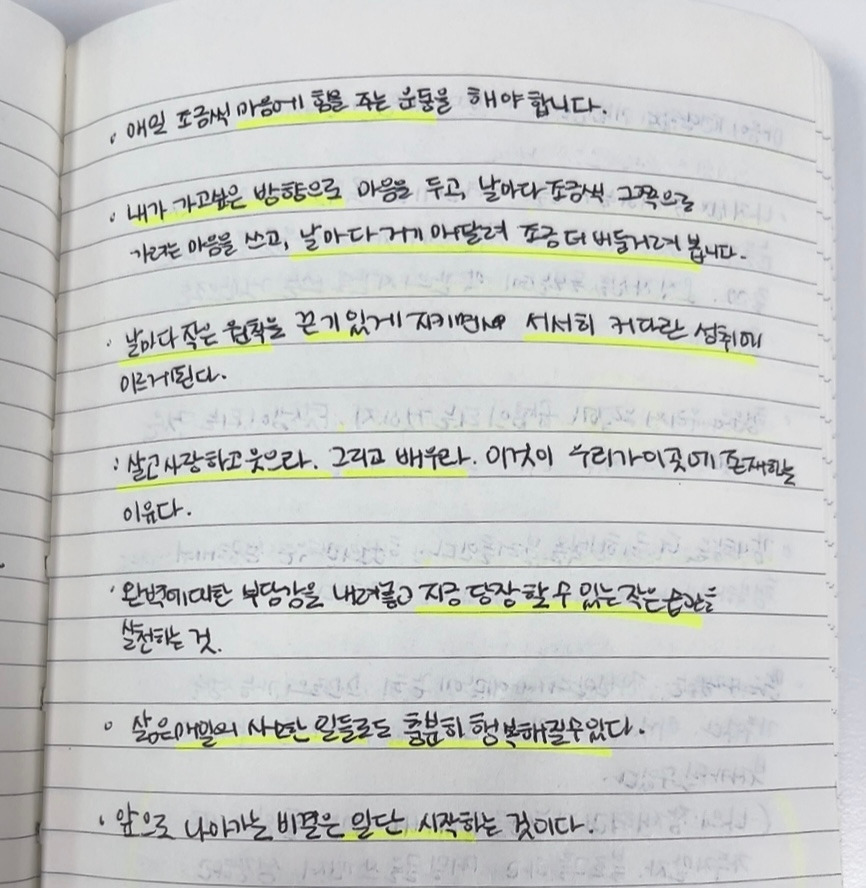 • 매일 조금씩 마음에 힘을 주는 운동을 해야 합니다.
• 내가 가고싶은 방향으로 마음을 두고, 날마다 조금씩 그쪽으로
가려는 마음을 쓰고, 날마다 거기 매달려 조금 더 버둥거려 봅니다.
• 날마다 작은 원칙을 끈기있게 지키면서 서서히 커다란 성취에
이르게된다.
• 살고 사랑하고 웃으라. 그리고 배우라. 이것이 우리가 이곳에 존재하는
이유다.
• 완벽에 대한 부담감을 내려놓고 지금 당장 할 수 있는 작은 습관을
실천하는 것.
• 삶은 매일의 사소한 일들로도 충분히 행복해질 수 있다.
• 앞으로 나아가는 비결은 일단 시작하는 것이다.